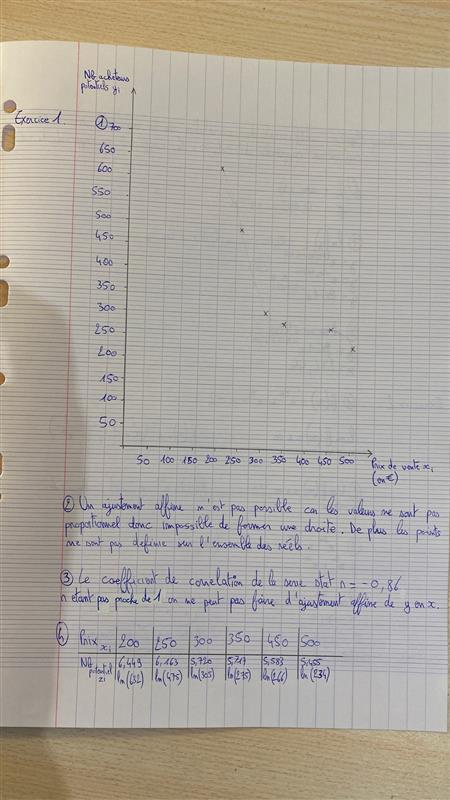 Nb acheteurs
potentiels yi
Exercice 1.
1 700
650
600
550
500
450
400
350
300
250
200
150
100
50
50 100 150 200 250 300 350 400 450 500
Prix de vente xi
(en €)
2 Un ajustement affine n'est pas possible car les valeurs ne sont pas
proportionnel donc impossible de former une droite. De plus les points
ne sont pas definie sur l'ensemble des réels.
3 Le coefficient de correlation de la serie stat r = -0,86
r etant pas proche de 1 on ne peut pas faire d'ajustement affine de y en x.
4) Prix xi 200 250 300 350 450 500
Nb potentiel zi 6,449 6,163 5,720 5,617 5,583 5,455
ln(632) ln(475) ln(305) ln(275) ln(266) ln(234)